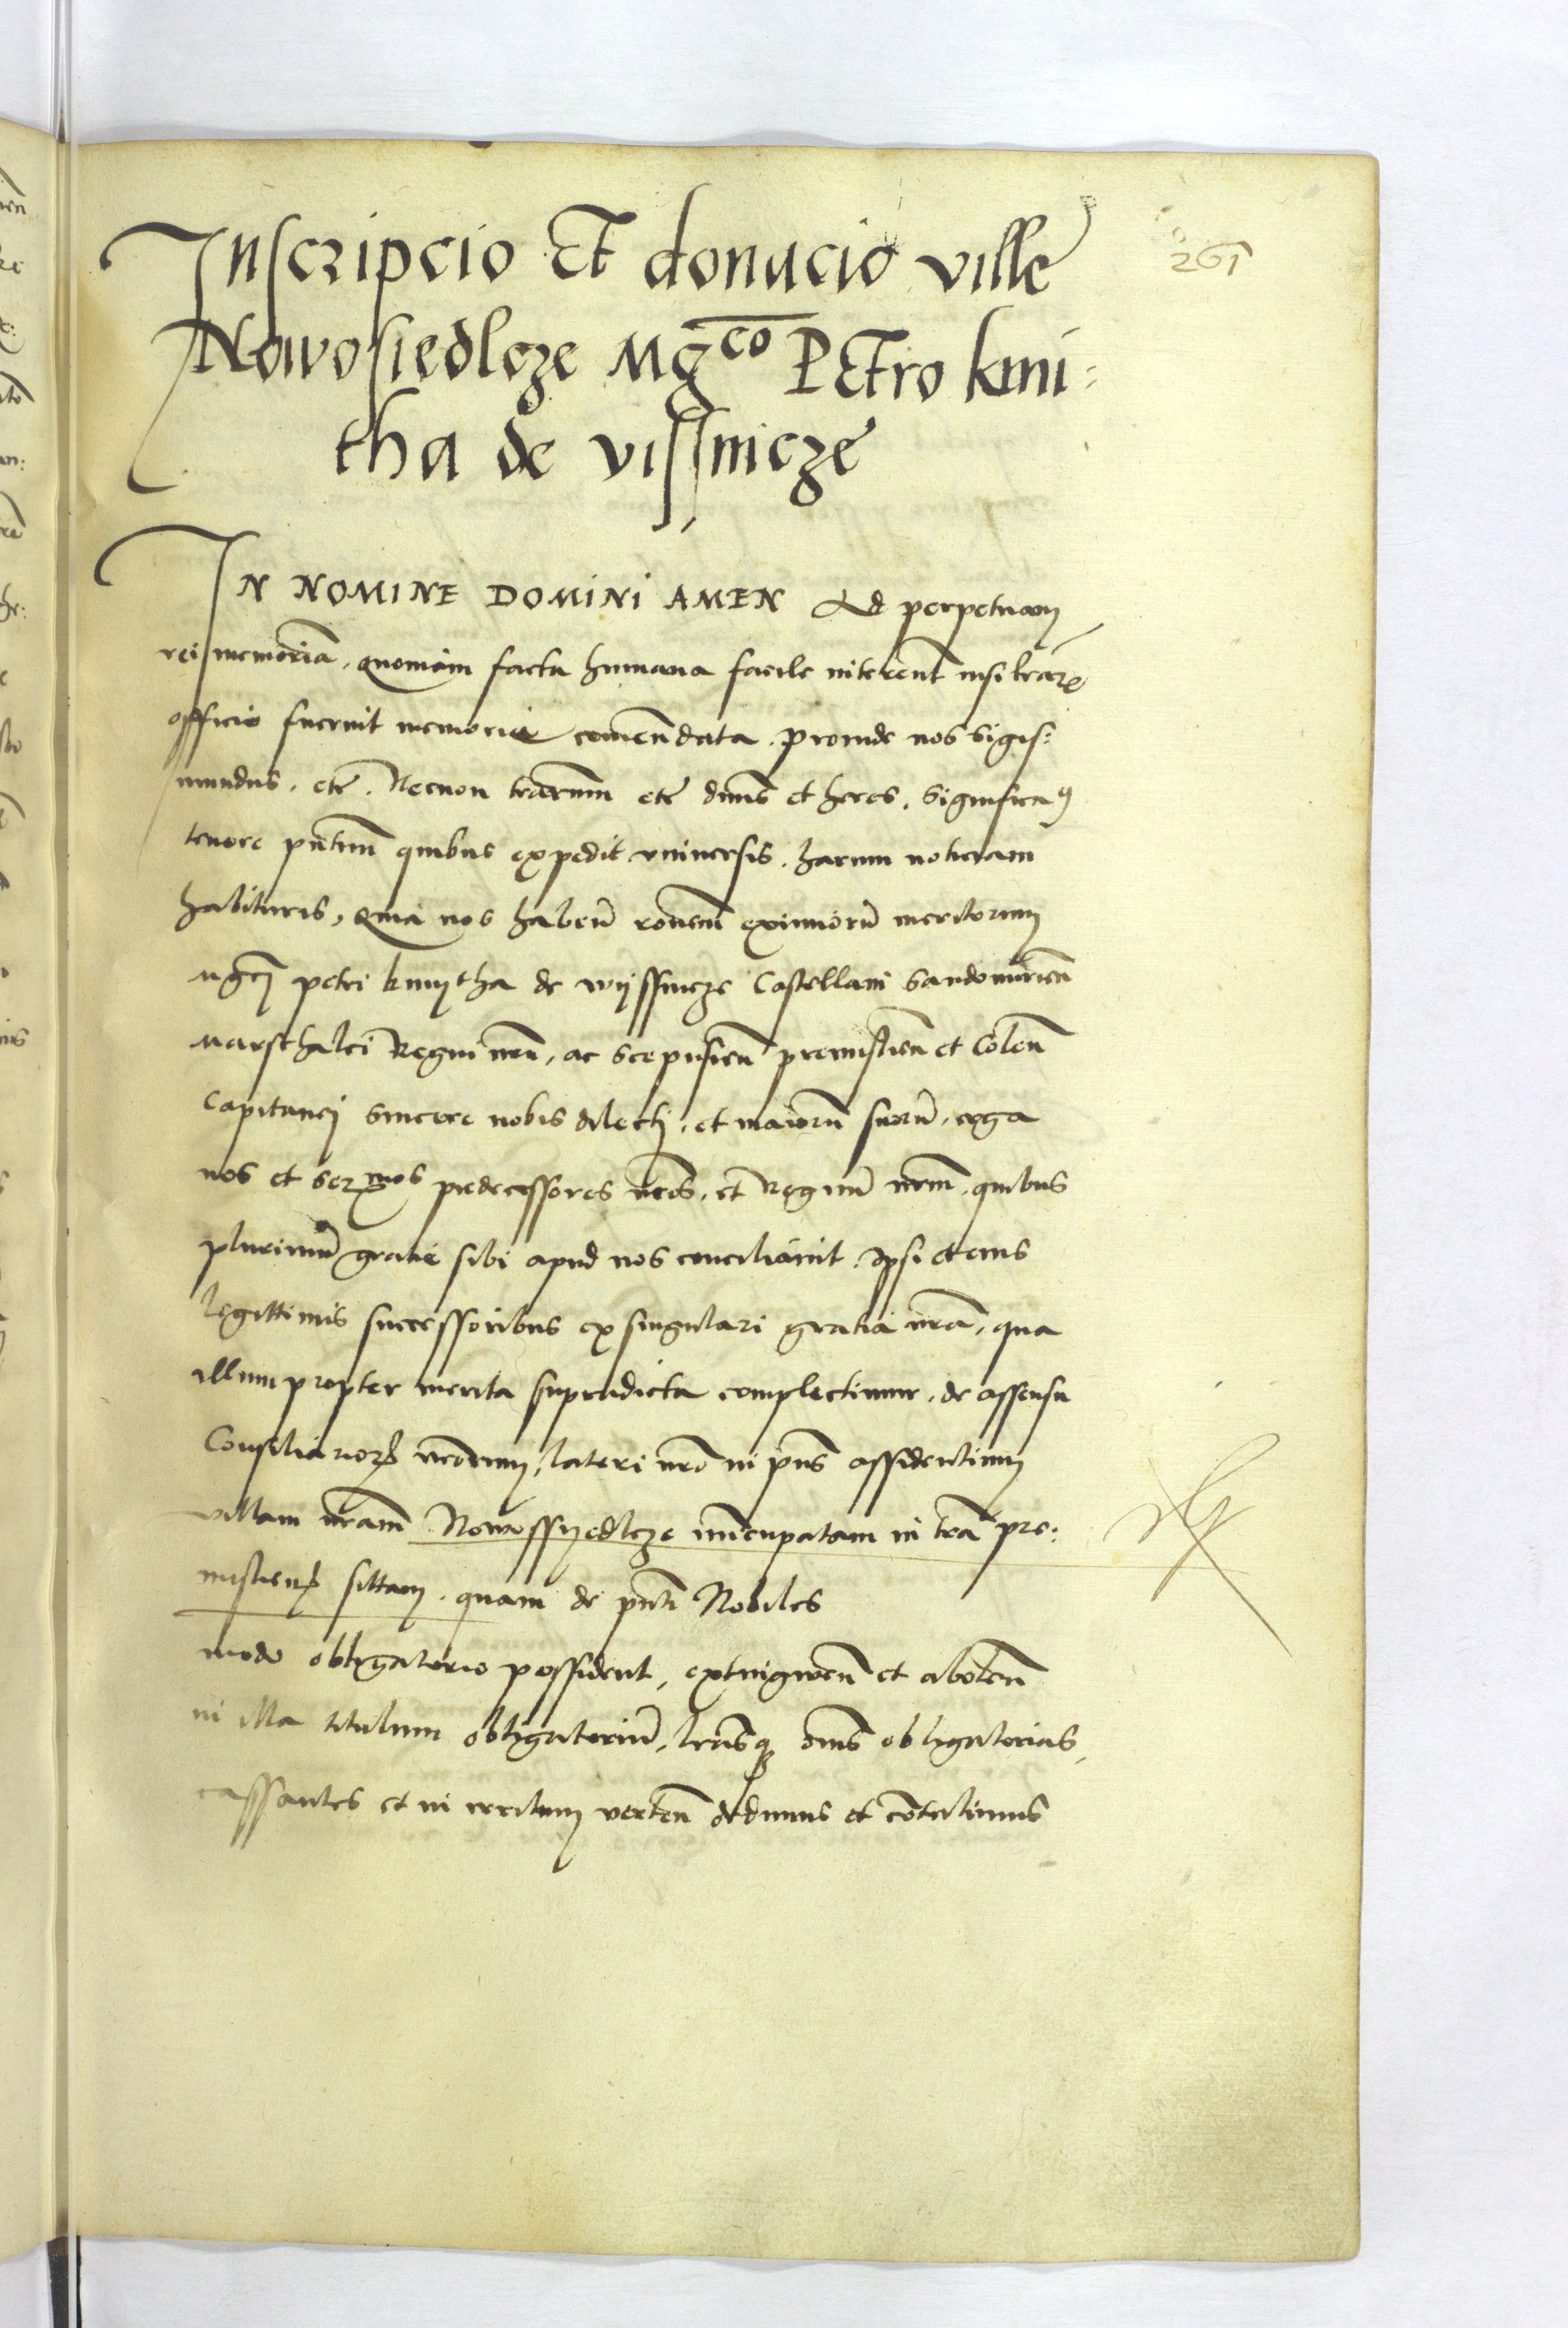 261
Inscripcio Et donacio ville
Nowosiedlcze Mg̅co PEtro kmi:
tha de vissnicze
IN NOMINE DOMINI AMEN Ad perpetuam
rei memoriã. quoniam facta humana facile interẽnt nisi lrar̃
officio fuerint memorie comẽndata. proinde nos Sigis:
mundus. etc̃. Necnon trãrumm etc̃ dnũs et heres. Significaꝫ
tenore pñtium quibus expedit vniuersis. harum noticiam
habituris, Quia nos habeñ ronẽm eximiorũ meritorum
Mgc̃j petri kmytha de wyssnicze Castellani Sandomirieñ
Marschalci Regni nrĩ, ac Scepusieñ premislieñ et Coleñ
Capitanej Sincere nobis dilectj, et maiorũ suorũ, erga
nos et Sermos predecessores nrõs, et Regnũ nrm̃, quibus
plurimũ gratie sibi apud nos conciliauit. Ipsi et eius
legittimis successoribus ex singulari gratia nrã, qua
illum propter merita supradicta complectimur, de assensu
Consiliarioꝝ nrõrum, lateri nrõ in pñs assidentium
villam nrãm Nowossyedlcze nũcupatam in trã pre:
mislienꝭ sittam. quam de pñti Nobiles
modo obligatorio possident, extingweñ et aboleñ
in illa titulum obligatoriũ, lrãsqꝫ om̃s obligatorias,
cassantes et in irritum verteñ dedimus et cõtulimus